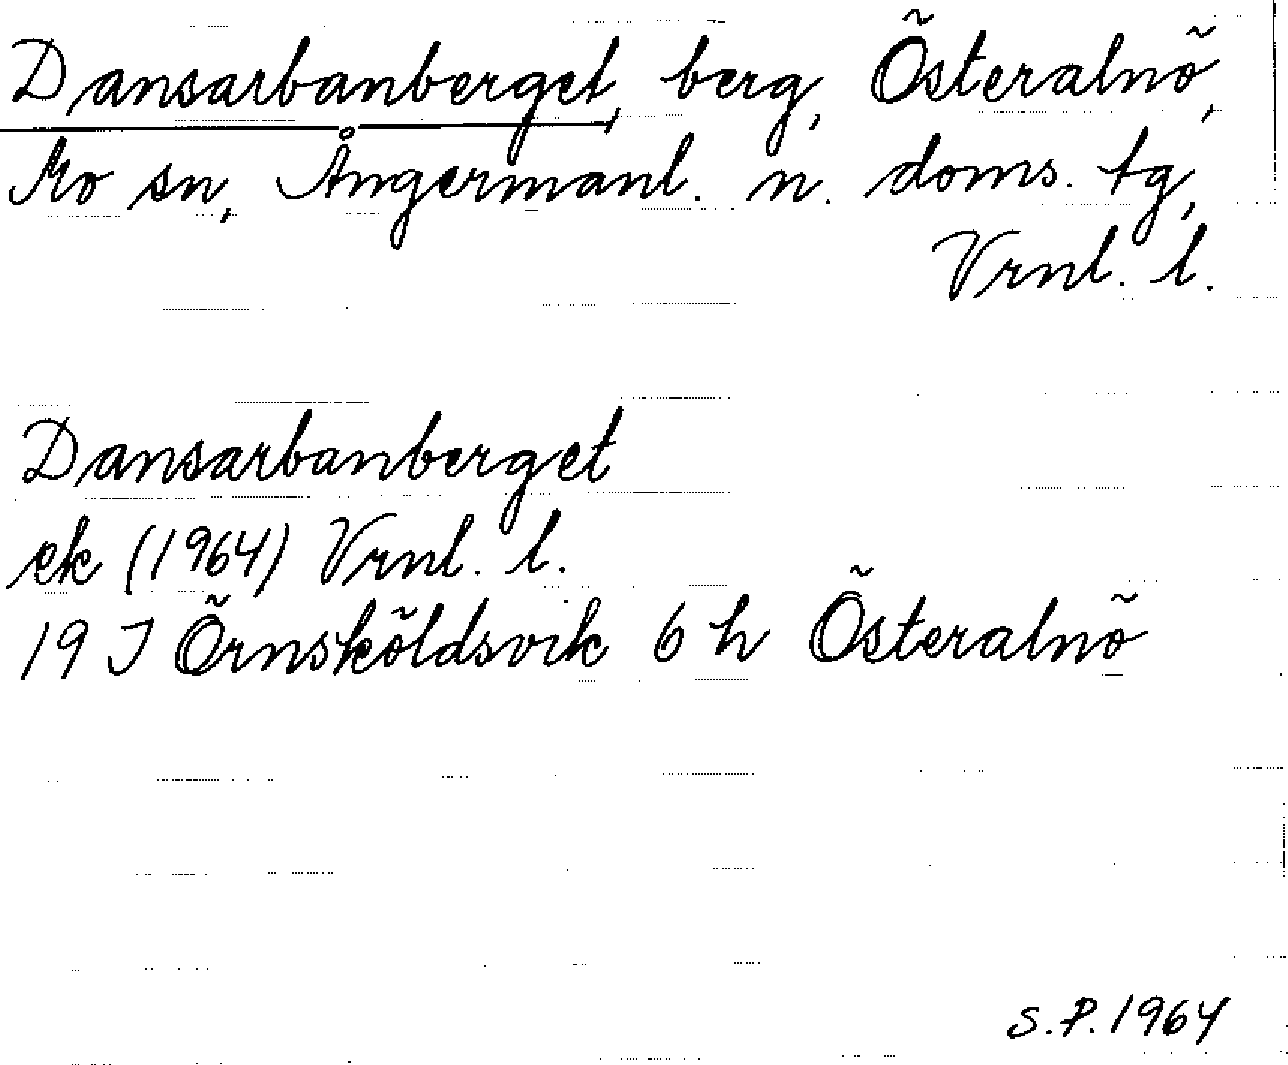 Dansarbanberget, berg, Österalnö,
Mo sn, Ångermanl. n. doms. tg,
Vrnl. l.
Dansarbanberget
ek (1964) Vrnl. l.
19 J Örnsköldsvik 6 h Österalnö
S.P. 1964